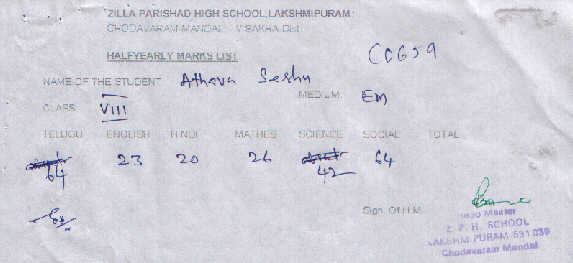 ZILLA PARISHAD HIGH SCHOOL, LAKSHMIPURAM
CHODAVARAM MANDAL VISAKHA Dist
HALFYEARLY MARKS LIST
CC659
NAME OF THE STUDENT Athava Seshu
MEDIUM EM
CLASS VIII
TELUGU ENGLISH HINDI MATHES SCIENCE SOCIAL TOTAL
64 23 20 26 42 64
Sign. Of H.M.
Head Master
Z. P. H. SCHOOL
LAKSHMIPURAM-531 039
Chodavaram Mandal